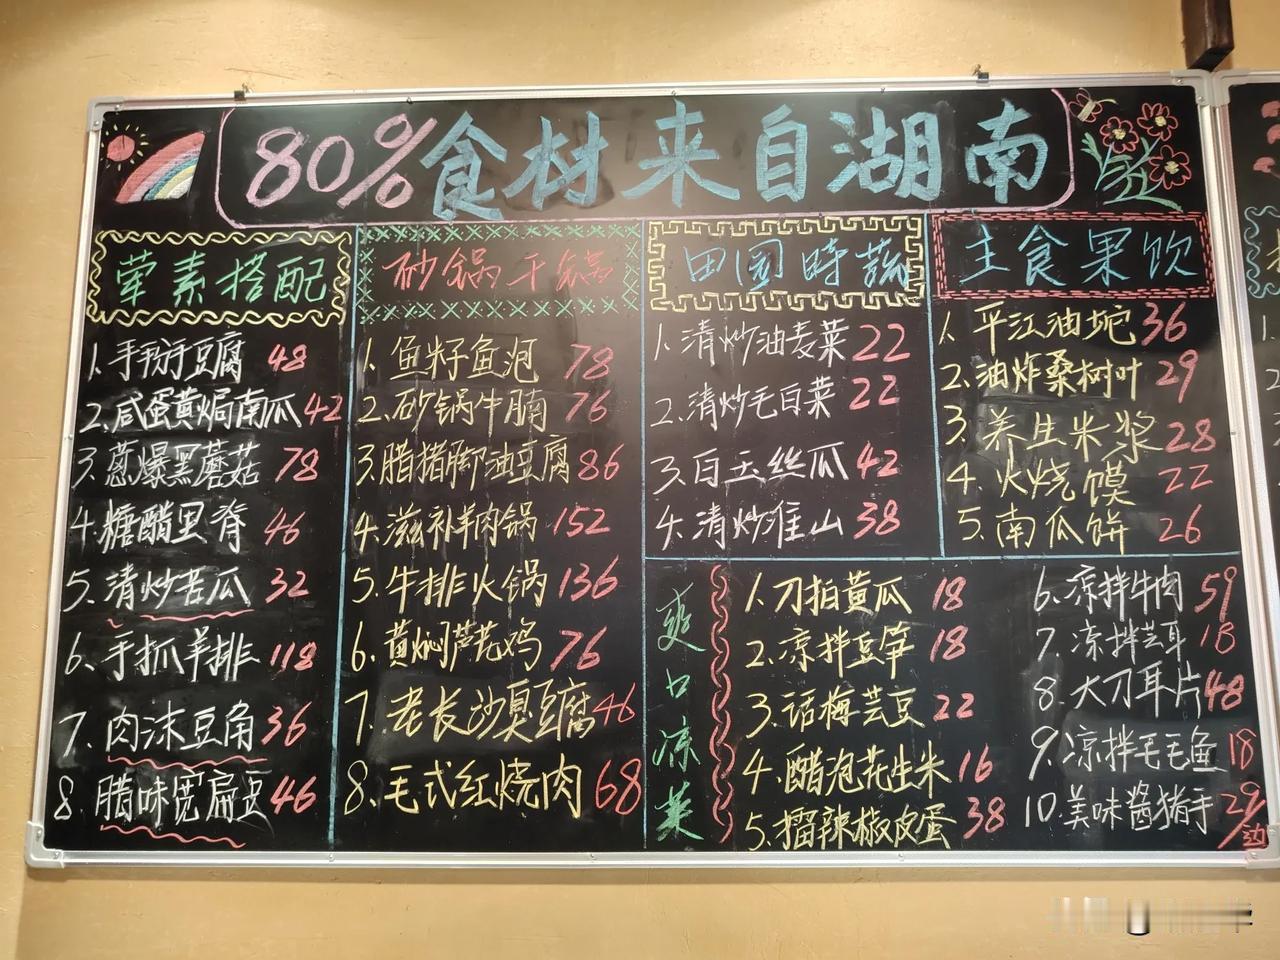 80%食材来自湖南
荤素搭配
1.手掰豆腐 48
2.咸蛋黄焗南瓜 42
3.葱爆黑蘑菇 78
4.糖醋里脊 46
5.清炒苦瓜 32
6.手抓羊排 118
7.肉沫豆角 36
8.腊味宽扁豆 46
砂锅干锅
1.鱼籽鱼泡 78
2.砂锅牛腩 76
3.腊猪脚油豆腐 86
4.滋补羊肉锅 152
5.牛排火锅 136
6.黄焖芦花鸡 76
7.老长沙臭豆腐 46
8.毛式红烧肉 68
田园时蔬
1.清炒油麦菜 22
2.清炒毛白菜 22
3.白玉丝瓜 42
4.清炒淮山 38
主食果饮
1.平江油坨 36
2.油炸桑树叶 29
3.养生米浆 28
4.火烧馍 22
5.南瓜饼 26
爽口凉菜
1.刀拍黄瓜 18
2.凉拌豆笋 18
3.话梅芸豆 22
4.醋泡花生米 16
5.擂辣椒皮蛋 38
6.凉拌牛肉 59
7.凉拌芸耳 18
8.大刀耳片 48
9.凉拌毛毛鱼 18
10.美味酱猪手 29/边